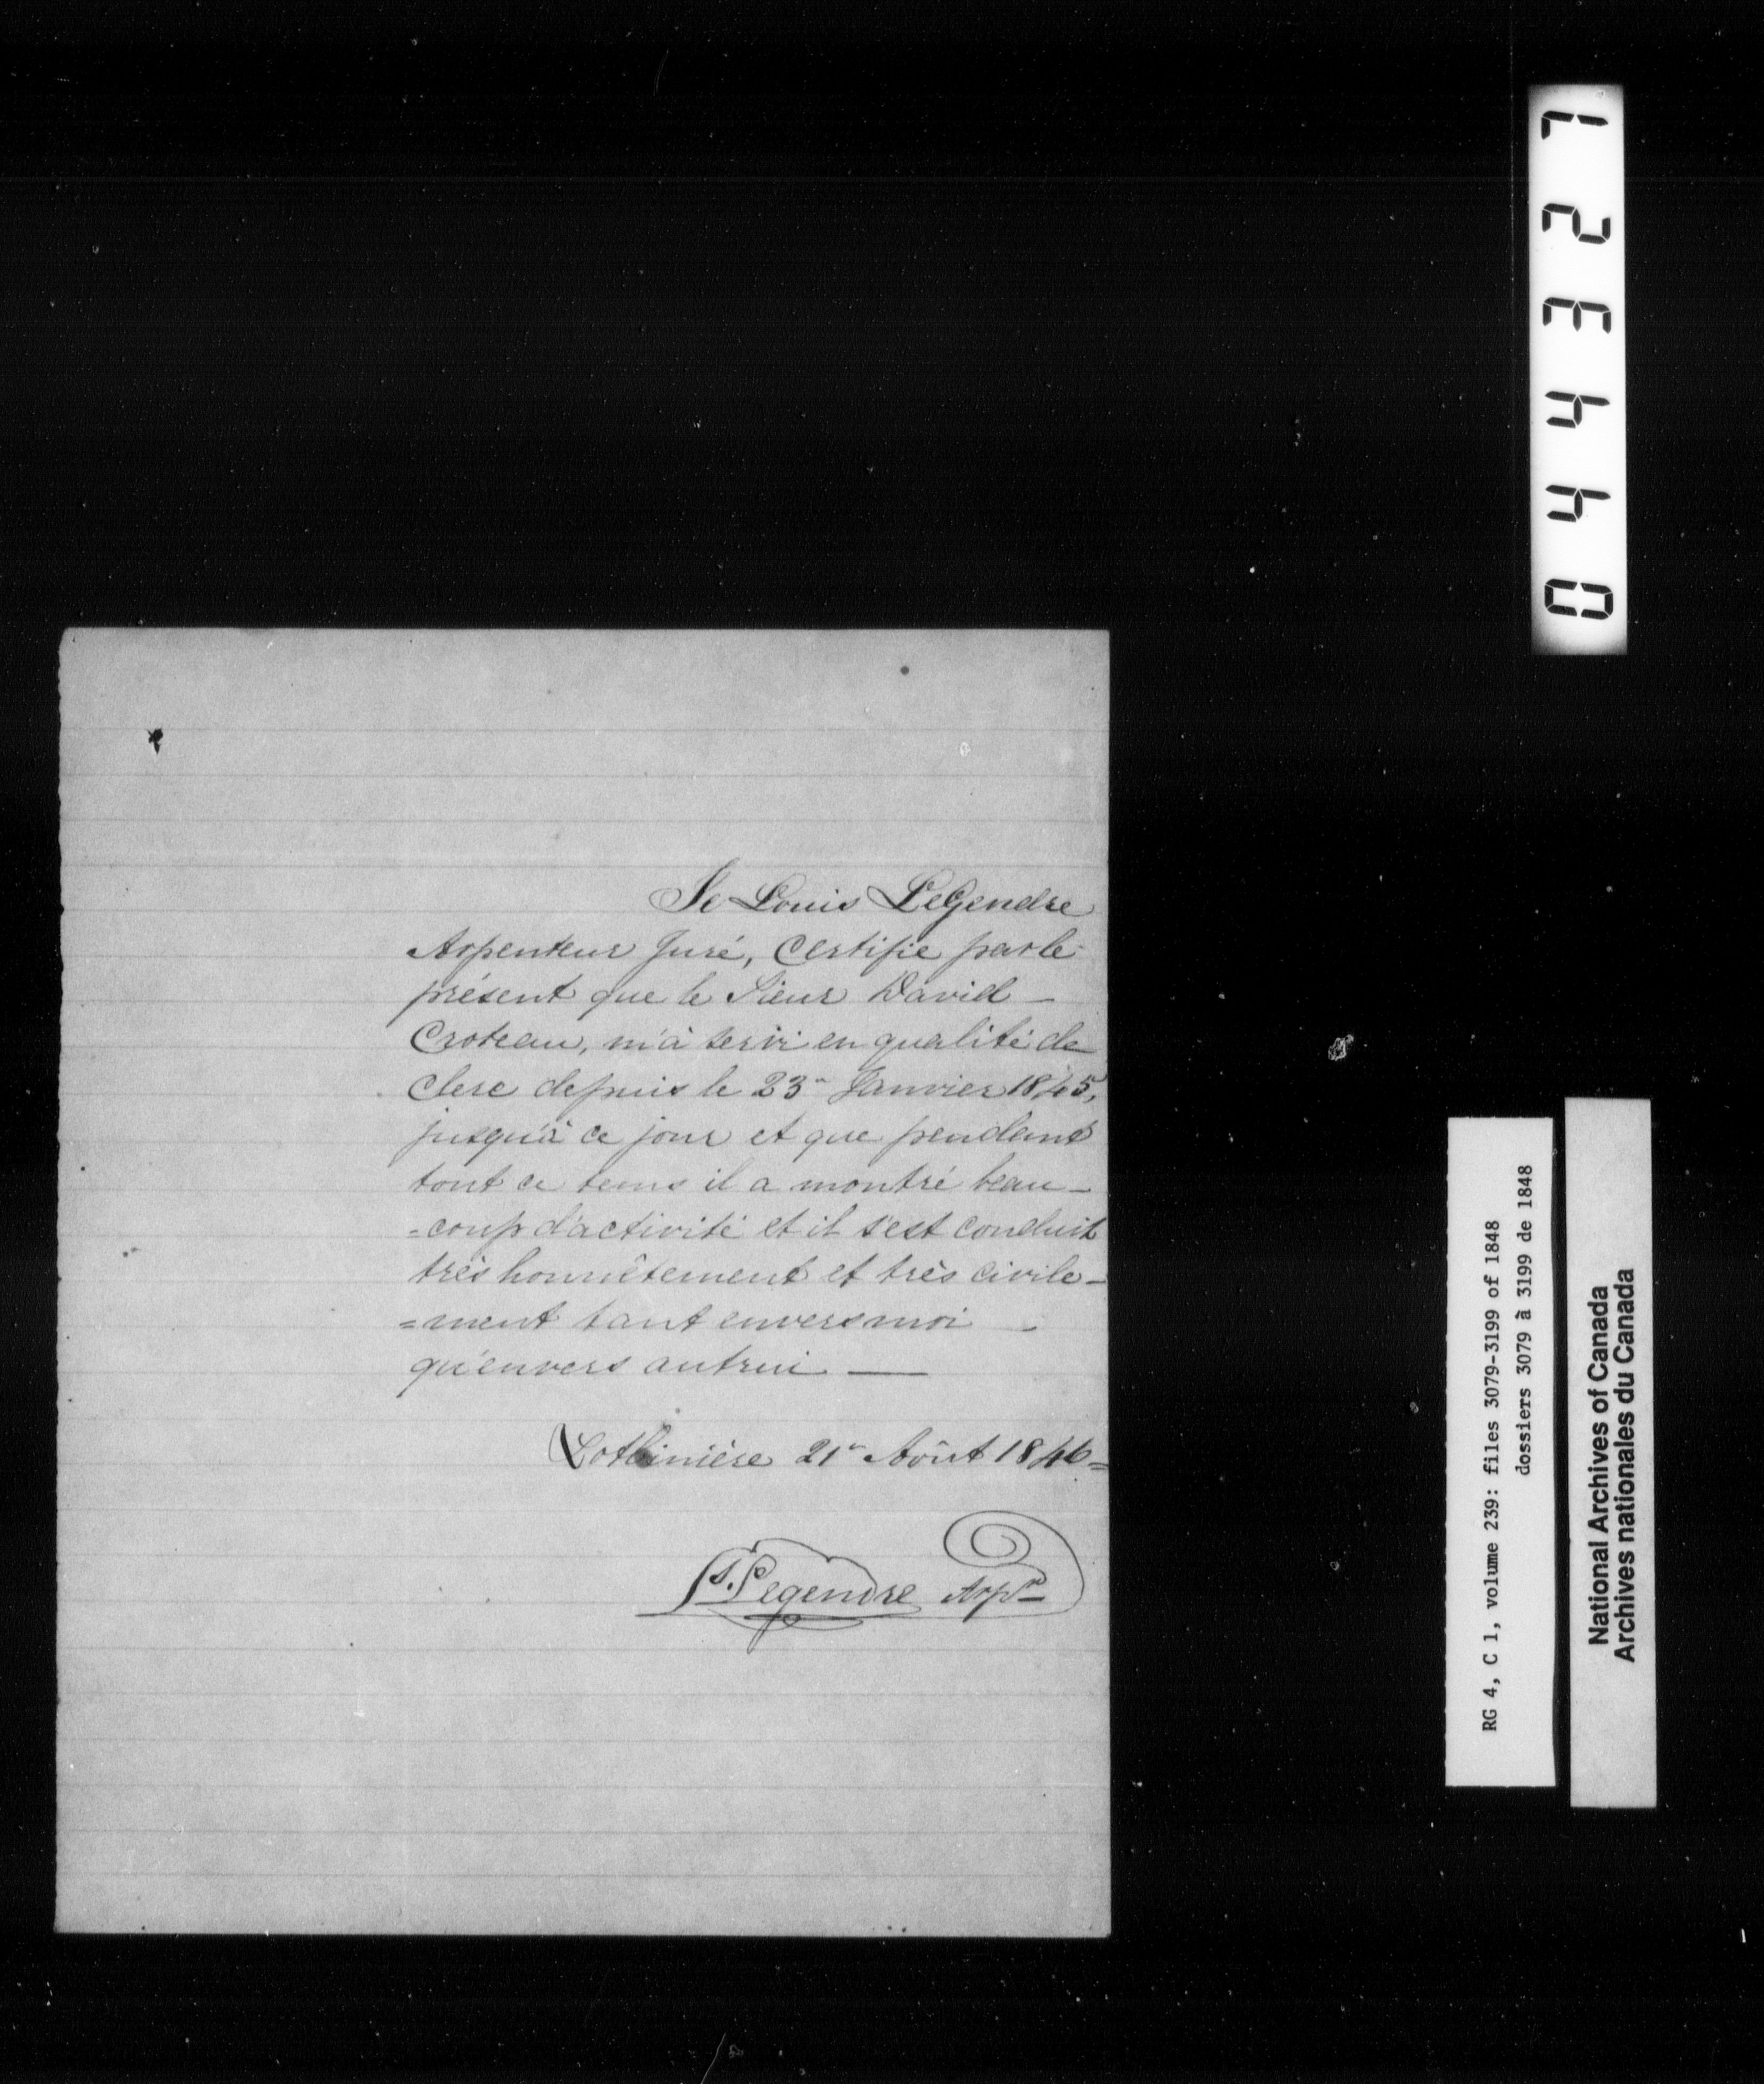 Je Louis LeGendre
Arpenteur Juré, Certifie par le
présent que le Sieur David -
Croteau, m'à servi en qualité de
Clerc depuis le 23 Janvier 1845,
jusqu'à ce jour et que pendant
tout ce tems il a montré beau-
=coup d'activité et il s'est conduit
très honnêtement et très civile-
=ment tant envers moi -
qu'envers autrui —
Lotbinière 21 Aôut 1846=
Ls. Legendre Arpr
044327
RG 4, C 1, volume 239: files 3079-3199 of 1848
dossiers 3079 à 3199 de 1848
National Archives of Canada
Archives nationales du Canada